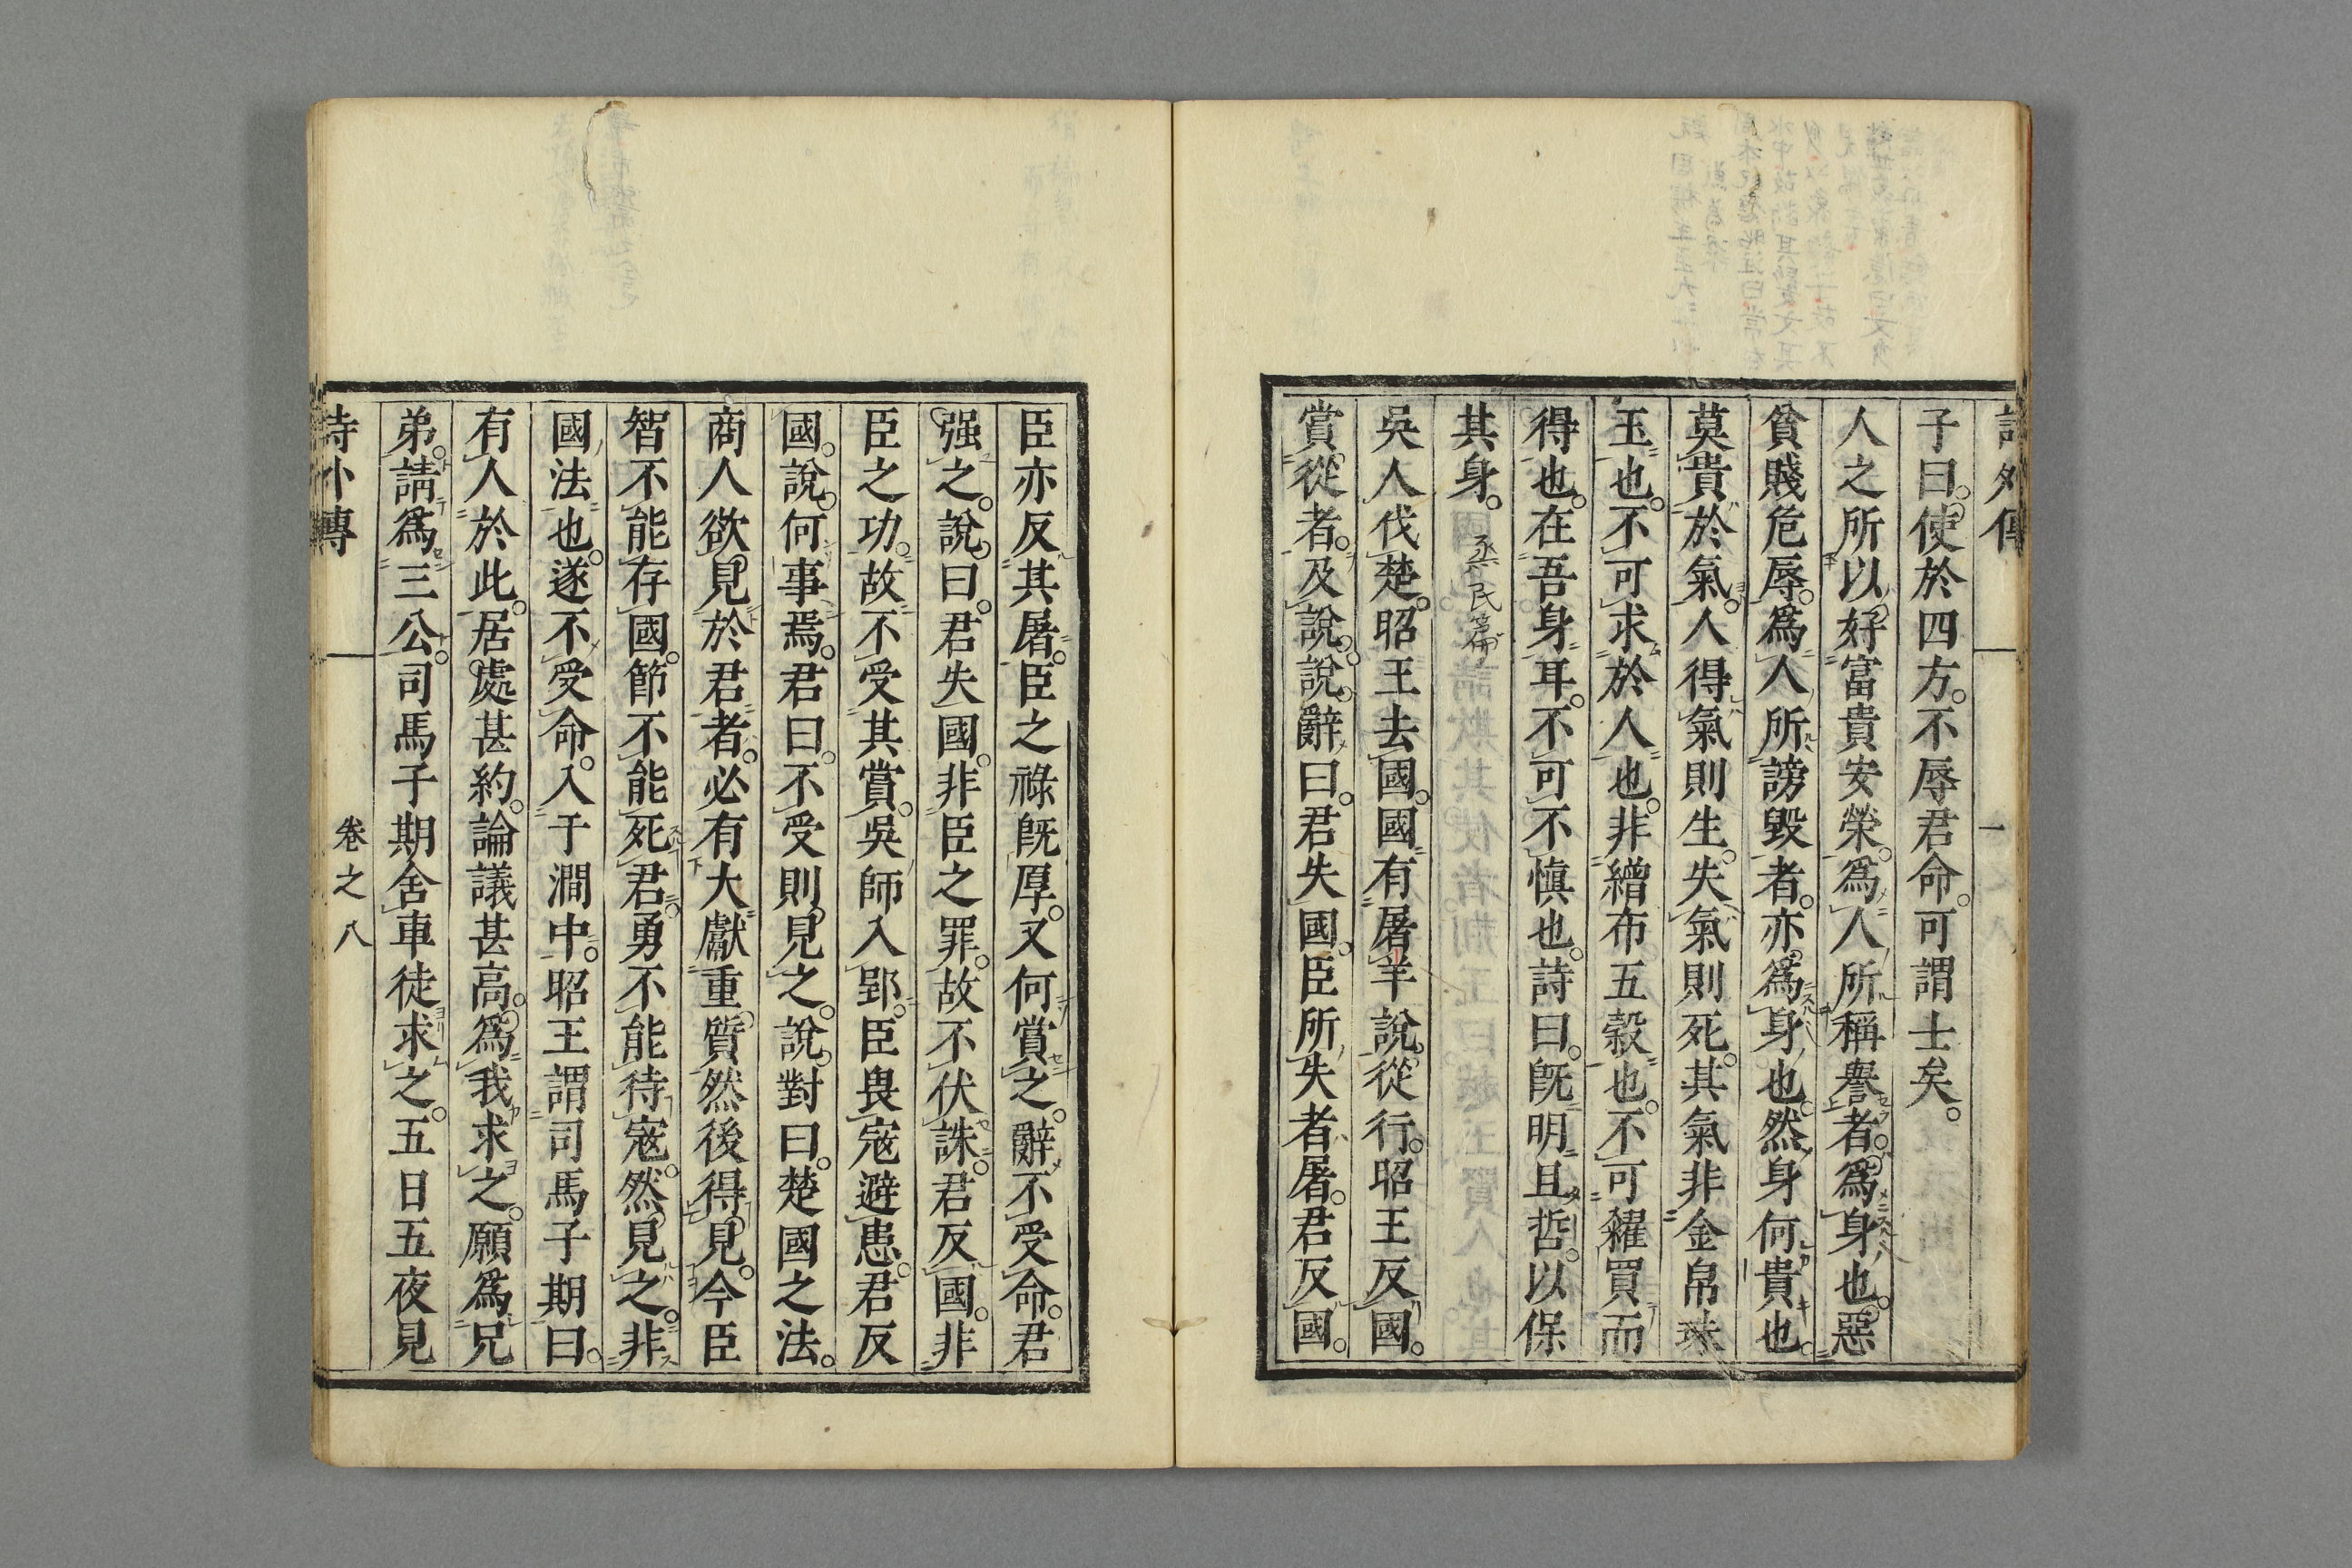 子曰。使於四方。不辱君命。可謂士矣。
人之所以好富貴安榮。爲人所稱譽者。爲身也。惡
貧賤危辱。爲人所謗毀者。亦爲身也。然身何貴也。
莫貴於氣。人得氣則生。失氣則死。其氣非金帛珠
玉也。不可求於人也。非繒布五穀也。不可糴買而
得也。在吾身耳。不可不慎也。詩曰。既明且哲。以保
其身。烝民篇
吳人伐楚。昭王去國。國有屠羊說。從行。昭王反國。
賞從者。及說。說。辭曰。君失國。臣所失者屠。君反國。
臣亦反其屠。臣之祿既厚。又何賞之。辭不受命。君
强之。說。曰。君失國。非臣之罪。故不伏誅。君反國。非
臣之功。故不受其賞。吳師入郢。臣畏寇避患。君反
國。說。何事焉。君曰。不受則見之。說。對曰。楚國之法。
商人欲見於君者。必有大獻重質。然後得見。今臣
智不能存國。節不能死君。勇不能待寇。然見之。非
國法也。遂不受命。入于澗中。昭王謂司馬子期曰。
有人於此。居處甚約。論議甚高。爲我求之。願爲兄
弟。請爲三公。司馬子期舍車徒求之。五日五夜見
卷之八